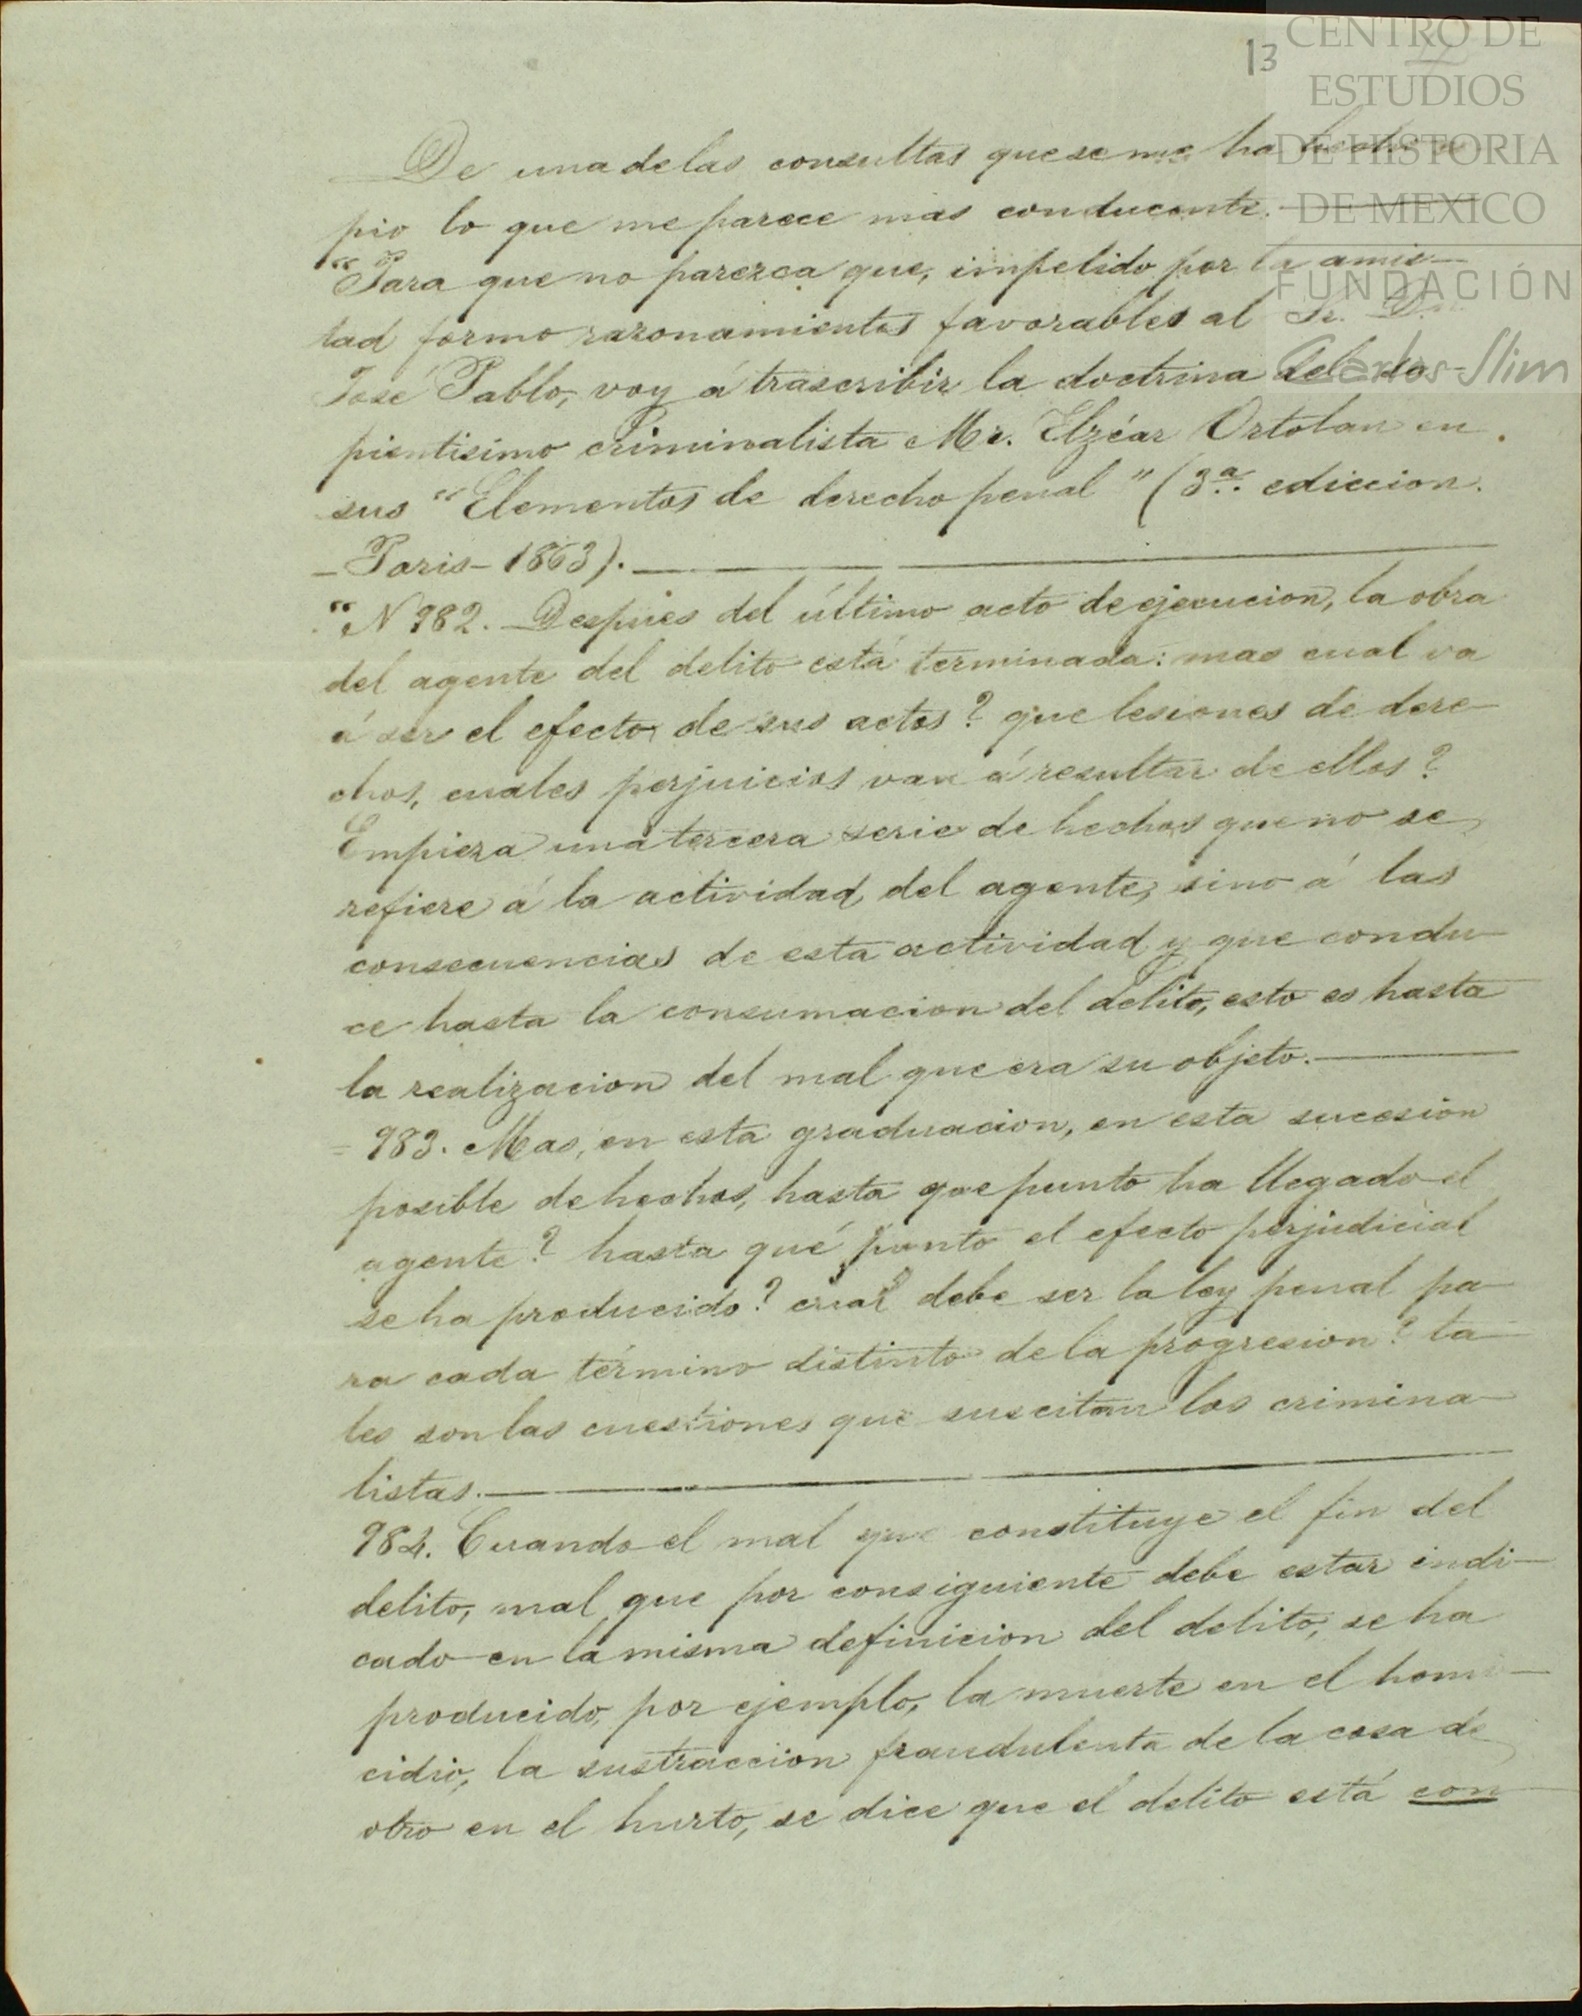 13
CENTRO DE
ESTUDIOS
DE HISTORIA
DE MEXICO
FUNDACIÓN
Carlos Slim
De una de las consultas que se me ha hecho
pio lo que me parece mas conducente.
"Para que no parezca que, impelido por la amis-
tad formo razonamientos favorables al Sr. Dn.
José Pablo, voy á trascribir la doctrina del sa-
pientisimo criminalista Mr. Elzéar Ortolan en
sus "Elementos de derecho penal" (3ª. ediccion.
-Paris-1863).
"N 982. Despues del último acto de ejecucion, la obra
del agente del delito está terminada: mas cual va
á ser el efecto de sus actos? que lesiones de dere-
chos, cuales perjuicios van á resultar de ellos?
Empieza una tercera serie de hechos que no se
refiere á la actividad del agente, sino á las
consecuencias de esta actividad y que condu-
ce hasta la consumacion del delito, esto es hasta
la realizacion del mal que era su objeto.
= 983. Mas, en esta graduacion, en esta sucesion
posible de hechos, hasta que punto ha llegado el
agente? hasta qué punto el efecto perjudicial
se ha producido? cual debe ser la ley penal pa-
ra cada término distinto de la progresion? ta-
les son las cuestiones que suscitan los crimina-
listas.
984. Cuando el mal que constituye el fin del
delito, mal que por consiguiente debe estar indi-
cado en la misma definicion del delito, se ha
producido, por ejemplo, la muerte en el homi-
cidio, la sustraccion fraudulenta de la cosa de
otro en el hurto, se dice que el delito está con